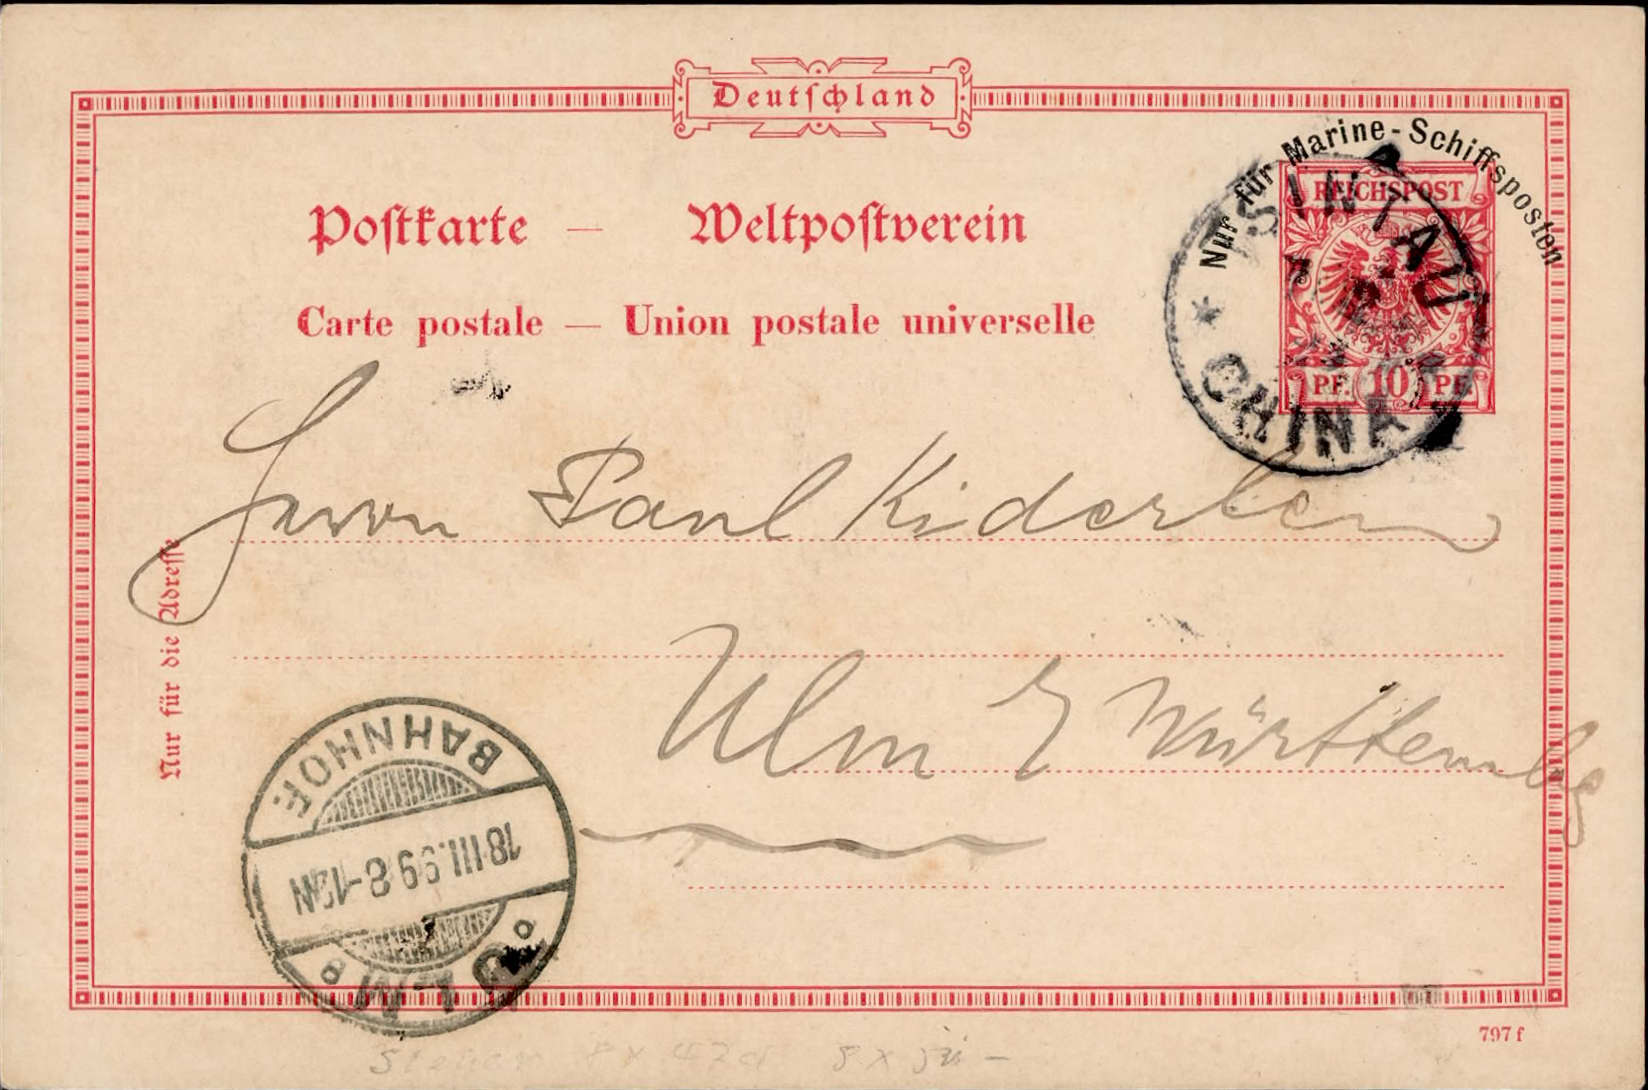 Deutschland
Nur für Marine-Schiffsposten
REICHSPOST
PF. 10 PF.
TSINTAU
CHINA
Postkarte — Weltpostverein
Carte postale — Union postale universelle
Herrn Paul Kiderlen
Ulm Württembg
Nur für die Adresse
BAHNHOF.
18 III.99 8-12N
ULM
797 f